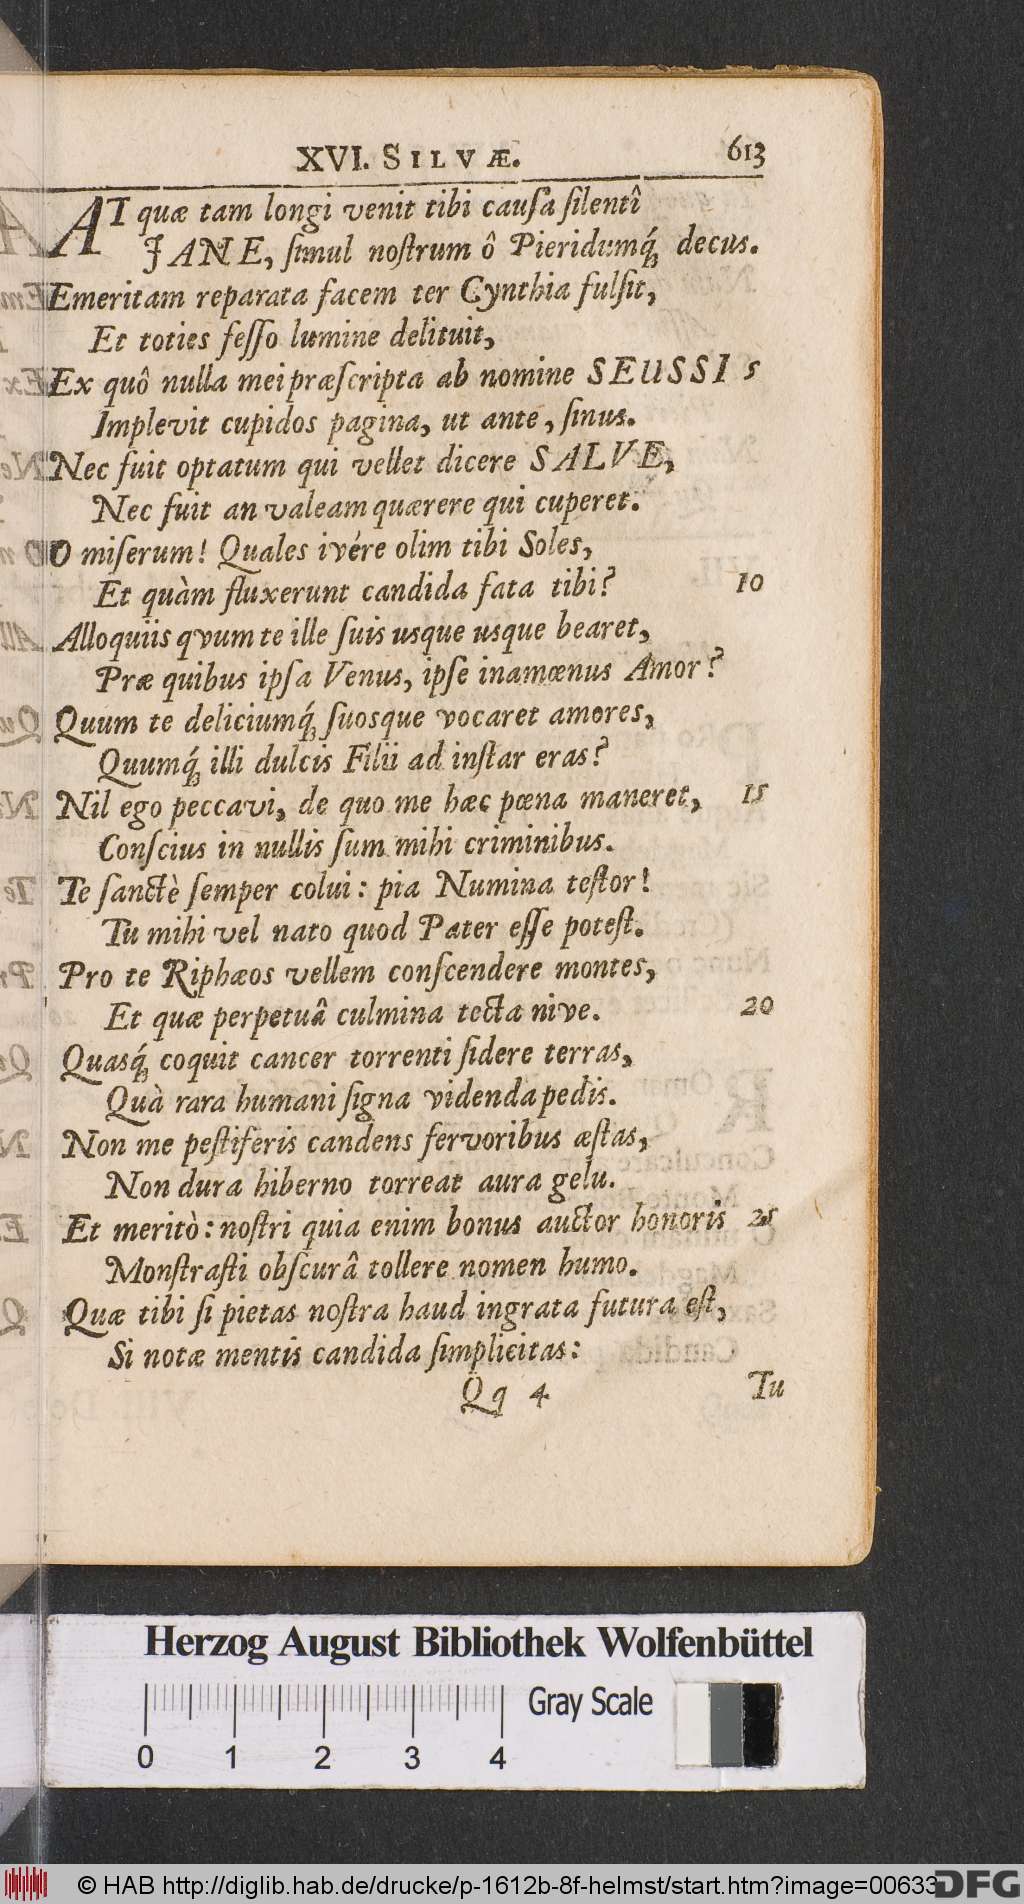 XVI. SILVÆ. 613
AT quæ tam longi venit tibi cauſa ſilentî
JANE, ſimul noſtrum ô Pieridumq́; decus.
Emeritam reparata facem ter Cynthia fulſit,
Et toties feſſo lumine delituit,
Ex quô nulla mei præſcripta ab nomine SEUSSI 5
Implevit cupidos pagina, ut ante, ſinus.
Nec fuit optatum qui vellet dicere SALVE,
Nec fuit an valeam quærere qui cuperet.
O miſerum! Quales ivére olim tibi Soles,
Et quàm fluxerunt candida fata tibi? 10
Alloquiis qvum te ille ſuis usque usque bearet,
Præ quibus ipſa Venus, ipſe inamœnus Amor?
Quum te deliciumq́; ſuosque vocaret amores,
Quumq́; illi dulcis Filii ad inſtar eras?
Nil ego peccavi, de quo me hæc pœna maneret, 15
Conſcius in nullis ſum mihi criminibus.
Te ſanctè ſemper colui: pia Numina teſtor!
Tu mihi vel nato quod Pater eſſe poteſt.
Pro te Riphæos vellem conſcendere montes,
Et quæ perpetuâ culmina tecta nive. 20
Quasq́; coquit cancer torrenti ſidere terras,
Quà rara humani ſigna videnda pedis.
Non me peſtiferis candens fervoribus æſtas,
Non dura hiberno torreat aura gelu.
Et meritò: noſtri quia enim bonus auctor honoris 25
Monſtraſti obſcurâ tollere nomen humo.
Quæ tibi ſi pietas noſtra haud ingrata futura eſt,
Si notæ mentis candida ſimplicitas:
Qq 4 Tu
Herzog August Bibliothek Wolfenbüttel
Gray Scale
0 1 2 3 4
© HAB http://diglib.hab.de/drucke/p-1612b-8f-helmst/start.htm?image=00633
DFG